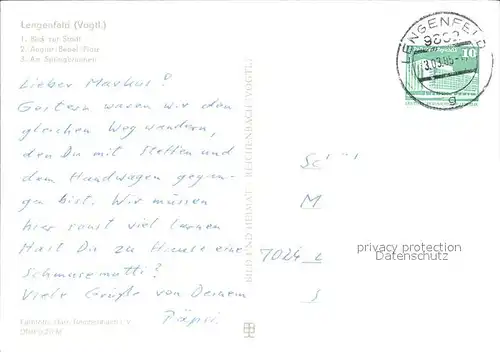 Lengenfeld (Vogtl.)
1. Blick zur Stadt
2. August-Bebel-Platz
3. Am Springbrunnen
Lieber Markus!
Gestern waren wir den
gleichen Weg wandern,
den Du mit Steffen und
dem Handwagen gegan-
gen bist. Wir müssen
hier sonst viel lernen
Hast Du zu Hause eine
Schmusemutti?
Viele Grüße von Deinem
Päpsi.
BILD UND HEIMAT REICHENBACH (VOGTL.)
LENGENFELD
9802
10
g
Sc
M
7024 L
privacy protection
Datenschutz